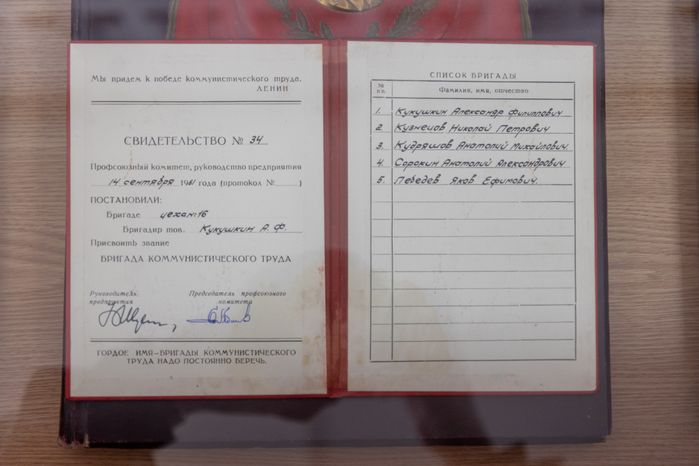 Мы придем к победе коммунистического труда.
ЛЕНИН
СВИДЕТЕЛЬСТВО № 34
Профсоюзный комитет, руководство предприятия
14 сентября 1961 года (протокол № )
ПОСТАНОВИЛИ:
Бригаде цехаn16
Бригадир тов. Кукушкин А. Ф.
Присвоить звание
БРИГАДА КОММУНИСТИЧЕСКОГО ТРУДА
Руководитель предприятия
Председатель профсоюзного комитета
ГОРДОЕ ИМЯ–БРИГАДЫ КОММУНИСТИЧЕСКОГО
ТРУДА НАДО ПОСТОЯННО БЕРЕЧЬ.
СПИСОК БРИГАДЫ
№ п.п. Фамилия, имя, отчество
1. Кукушкин Александр Филиппович
2 Кузнецов Николай Петрович
3. Кудряшов Анатолий Михайлович.
4. Сорокин Анатолий Александрович.
5. Лебедев Яков Ефимович.